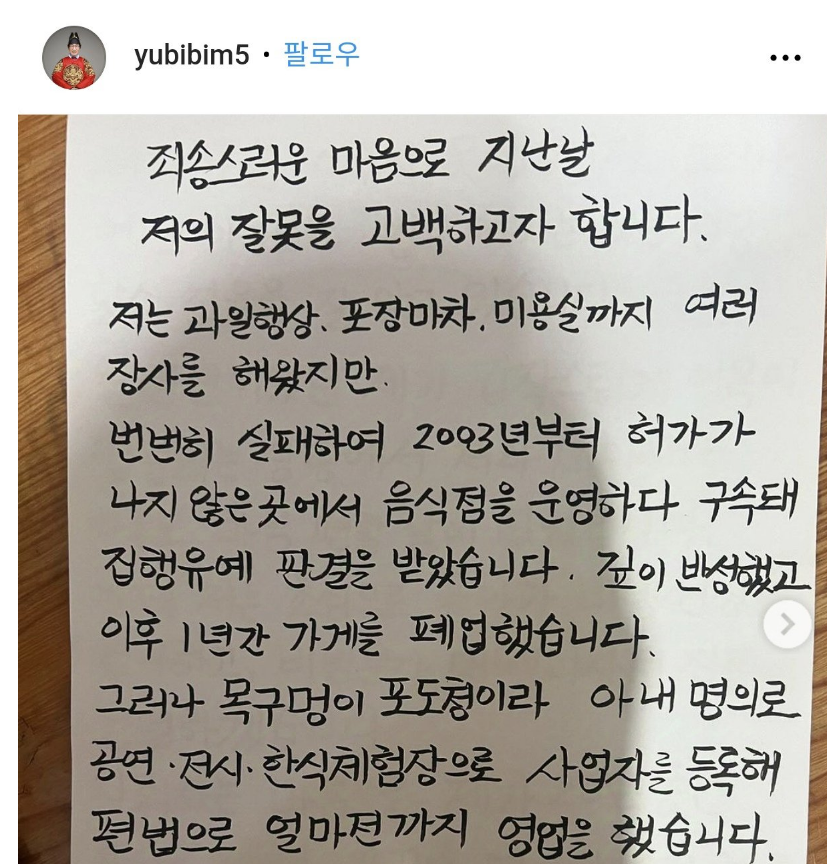 yubibim5 • 팔로우
죄송스러운 마음으로 지난날
저의 잘못을 고백하고자 합니다.
저는 과일행상. 포장마차. 미용실까지 여러
장사를 해왔지만.
번번히 실패하여 2003년부터 허가가
나지 않은 곳에서 음식점을 운영하다 구속돼
집행유예 판결을 받았습니다. 깊이 반성했고
이후 1년간 가게를 폐업했습니다.
그러나 목구멍이 포도청이라 아내 명의로
공연·전시·한식체험장으로 사업자를 등록해
편법으로 얼마전까지 영업을 했습니다.